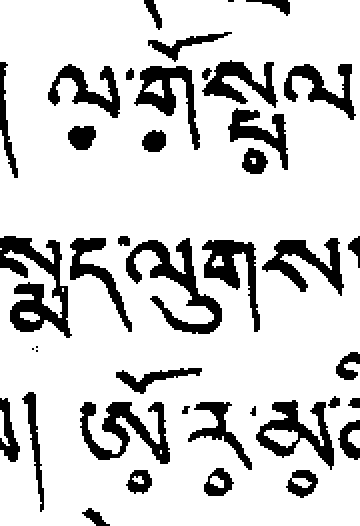 ། ལ་གོ་སྤལ
སྨད་ལུགས་
། ཨོ་ར་མ་